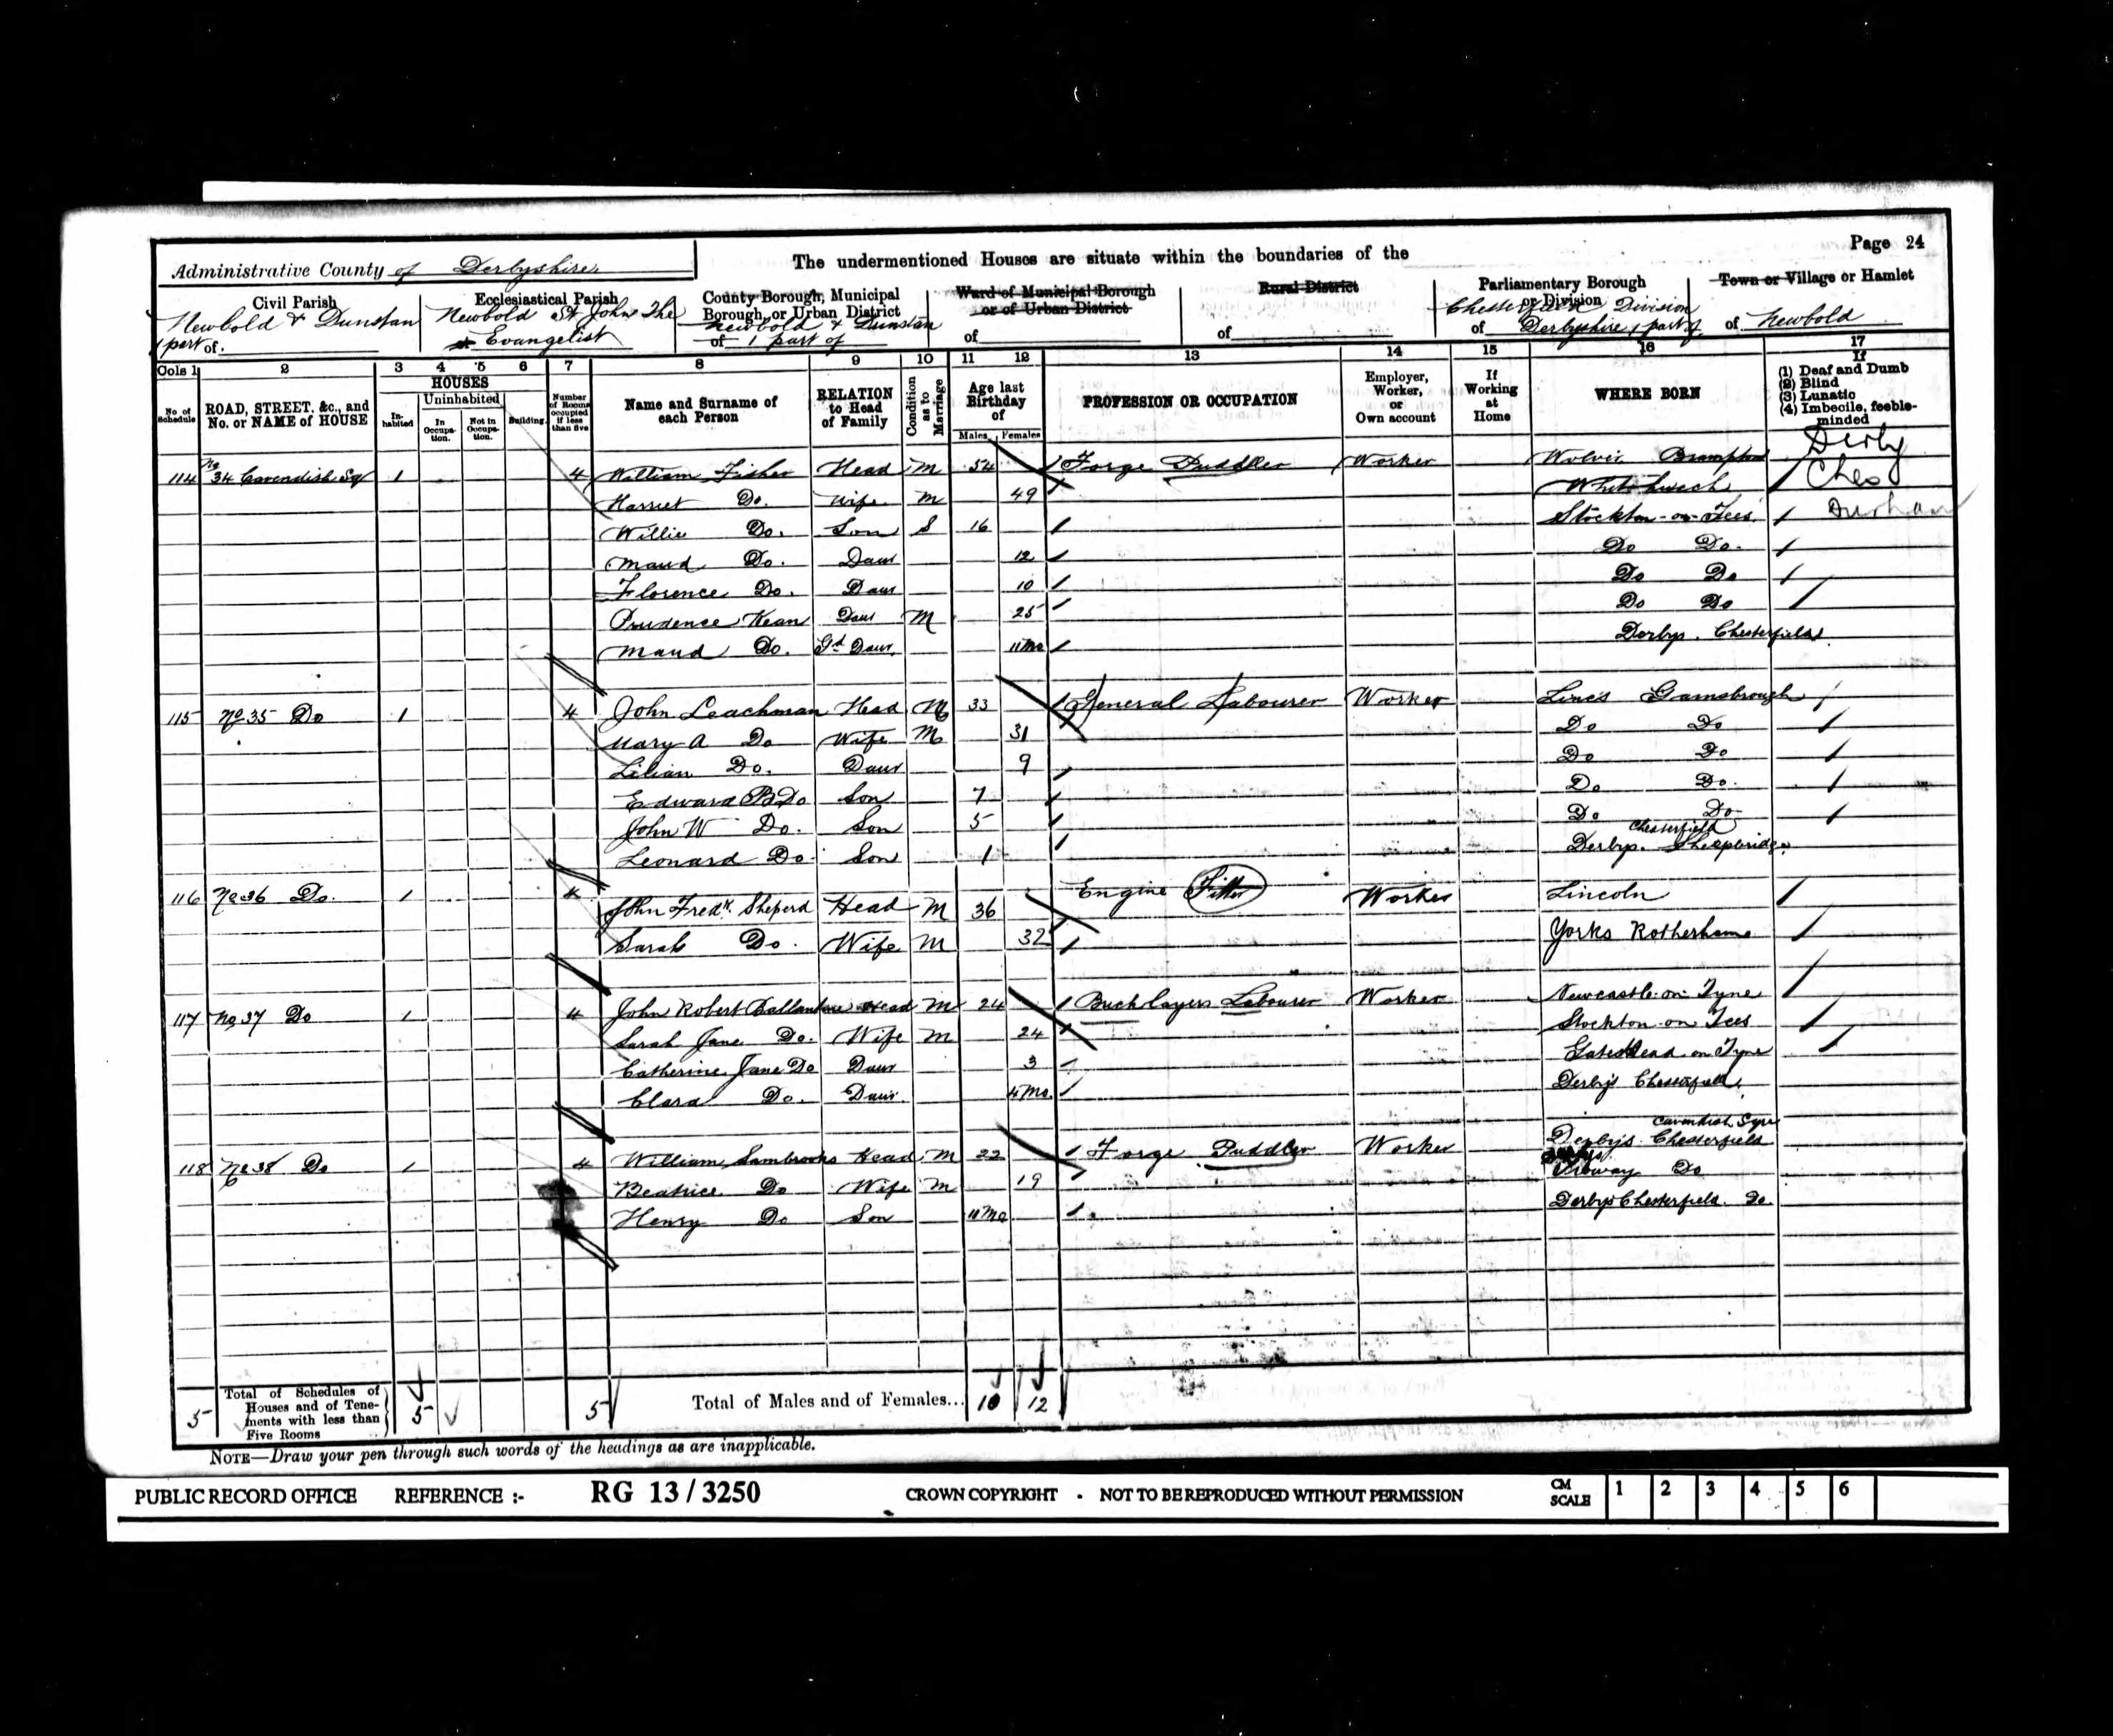 Page 24
Administrative County of Derbyshire
The undermentioned Houses are situate within the boundaries of the
Civil Parish
Newbold & Dunstan
part of
Ecclesiastical Parish
Newbold St John The
Evangelist
County Borough, Municipal
Borough, or Urban District
Newbold & Dunstan
of part of
Ward of Municipal Borough
or of Urban District
of
Rural District
of
Parliamentary Borough
or Division
Chesterfield Division
of Derbyshire part of
Town or Village or Hamlet
of Newbold
Cols 1 2 3 4 5 6 7 8 9 10 11 12 13 14 15 16 17
No of Schedule
ROAD, STREET, &c., and No. or NAME of HOUSE
HOUSES
Inhabited
Uninhabited
In Occupation.
Not in Occupation.
Building.
Number of Rooms occupied if less than five
Name and Surname of each Person
RELATION to Head of Family
Condition as to Marriage
Age last Birthday of
Males Females
PROFESSION OR OCCUPATION
Employer, Worker, or Own account
If Working at Home
WHERE BORN
If
(1) Deaf and Dumb
(2) Blind
(3) Lunatic
(4) Imbecile, feeble-minded
114 No 34 Cavendish Sq 1 4 William Fisher Head M 54 Forge Puddler Worker Brampton Derby
Harriet Do. Wife M 49 Ches
Willie Do. Son S 16 Stockton-on-Tees Durham
Maud Do. Daur 12 Do Do.
Florence Do. Daur 10 Do Do
Prudence Kean Daur M 25 Do Do
Maud Do. Gd Daur. 11Mo Derbys. Chesterfield
115 No 35 Do 1 4 John Leachman Head M 33 General Labourer Worker Lincs Gainsbrough
Mary A Do Wife M 31 Do Do
Lilian Do. Daur 9 Do Do
Edward B Do Son 7 Do Do.
John W Do. Son 5 Do Do
Leonard Do Son 1 Derbys. Chesterfield Sheepbridge
116 No 36 Do. 1 4 John Fredk. Sheperd Head M 36 Engine Fitter Worker Lincoln
Sarah Do. Wife M 32 Yorks Rotherham
117 No 37 Do 1 4 John Robert Ballantine Head M 24 Bricklayers Labourer Worker Newcastle-on-Tyne
Sarah Jane Do. Wife M 24 Stockton-on Tees
Catherine Jane Do Daur 3 Gateshead on Tyne
Clara Do. Daur. 4 Mo. Derbys Chesterfield
118 No 38 Do 1 4 William Sambrooks Head M 22 Forge Puddler Worker Derbys. Chesterfield Cavendish Sqre
Beatrice Do Wife M 19 Do
Henry Do Son 11 Mo Derbys Chesterfield Do.
5 Total of Schedules of
Houses and of Tene-
ments with less than
Five Rooms
5 5 Total of Males and of Females... 10 12
NOTE—Draw your pen through such words of the headings as are inapplicable.
PUBLIC RECORD OFFICE REFERENCE :- RG 13 / 3250 CROWN COPYRIGHT · NOT TO BE REPRODUCED WITHOUT PERMISSION CM SCALE 1 2 3 4 5 6